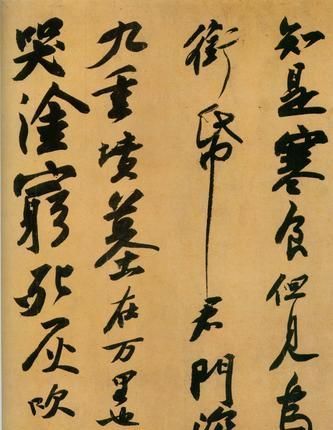 知是寒食但見烏
銜帋君門深
九重墳墓在万里也
哭塗窮死灰吹